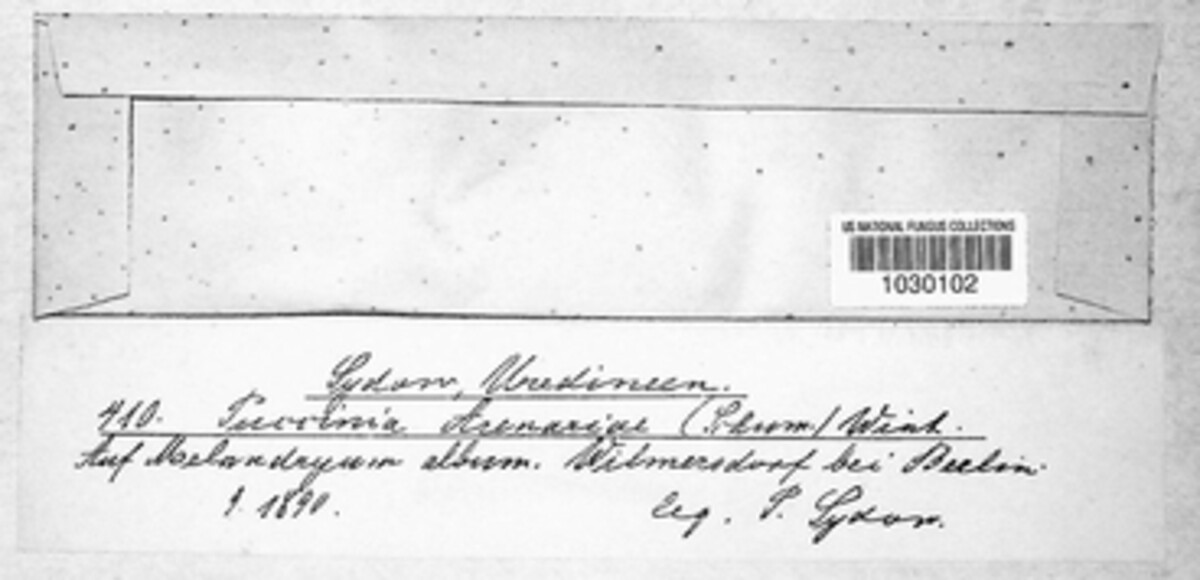 US NATIONAL FUNGUS COLLECTIONS
1030102
Sydow, Uredineen.
410. Puccinia Arenariae (Schum.) Wint.
Auf Melandryum album. Wilmersdorf bei Berlin.
9. 1890.
leg. P. Sydow.